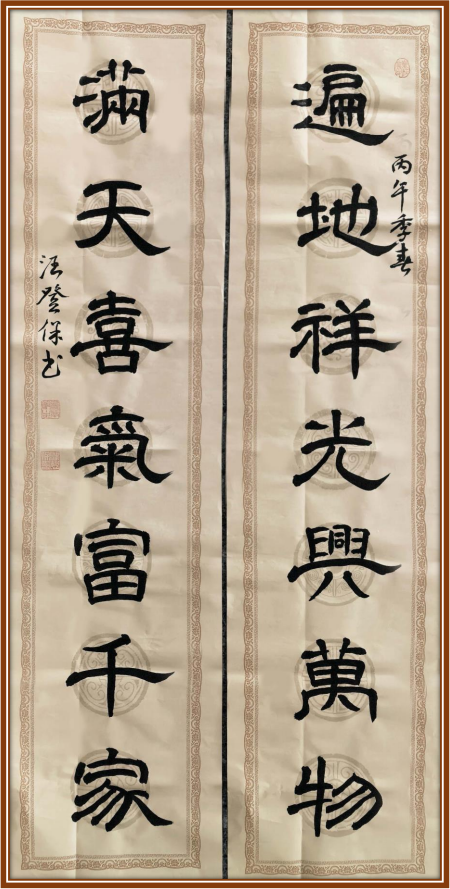 丙午季春
遍地祥光興萬物
滿天喜氣富千家
汪登保书